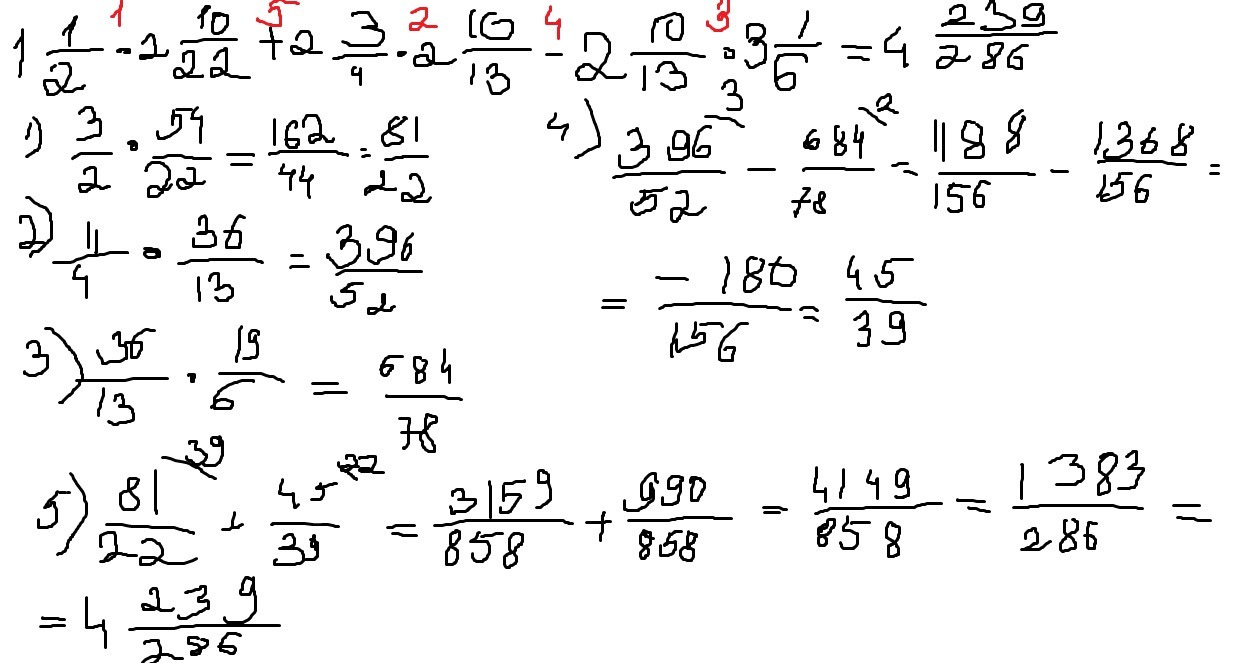 1 5 2 4 3
1 1/2 · 2 10/22 + 2 3/4 · 2 10/13 - 2 10/13 · 3 1/6 = 4 239/286
1) 3/2 · 54/22 = 162/44 = 81/22
2) 11/4 · 36/13 = 396/52
3) 36/13 · 19/6 = 684/78
4) 396/52 \3 - 684/78 \2 = 1188/156 - 1368/156 =
= -180/156 = 45/39
5) 81/22 \39 + 45/39 \22 = 3159/858 + 990/858 = 4149/858 = 1383/286 =
= 4 239/286